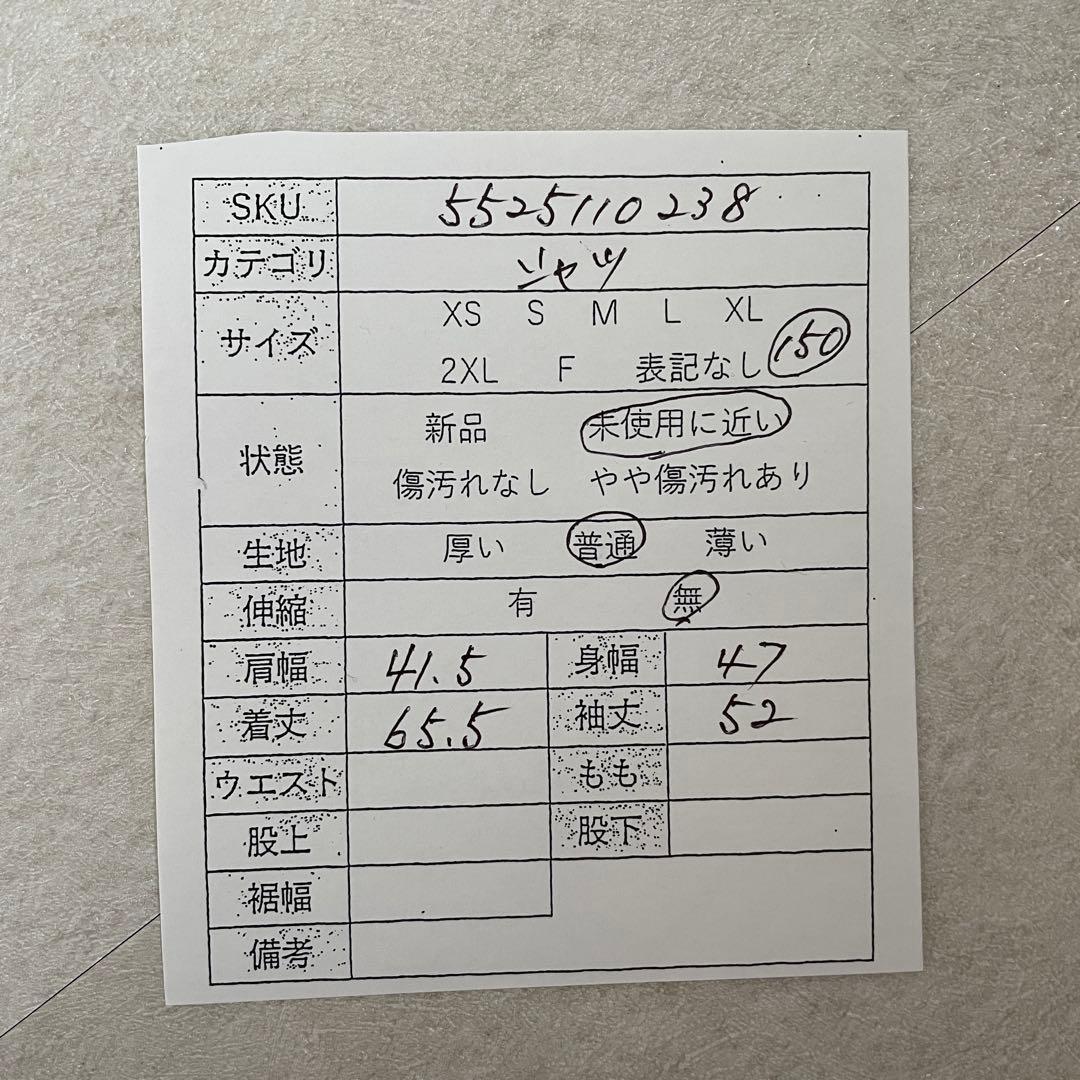 SKU 5525110238
カテゴリ シャツ
サイズ XS S M L XL
2XL F 表記なし 150
状態 新品 未使用に近い
傷汚れなし やや傷汚れあり
生地 厚い 普通 薄い
伸縮 有 無
肩幅 41.5 身幅 47
着丈 65.5 袖丈 52
ウエスト もも
股上 股下
裾幅
備考